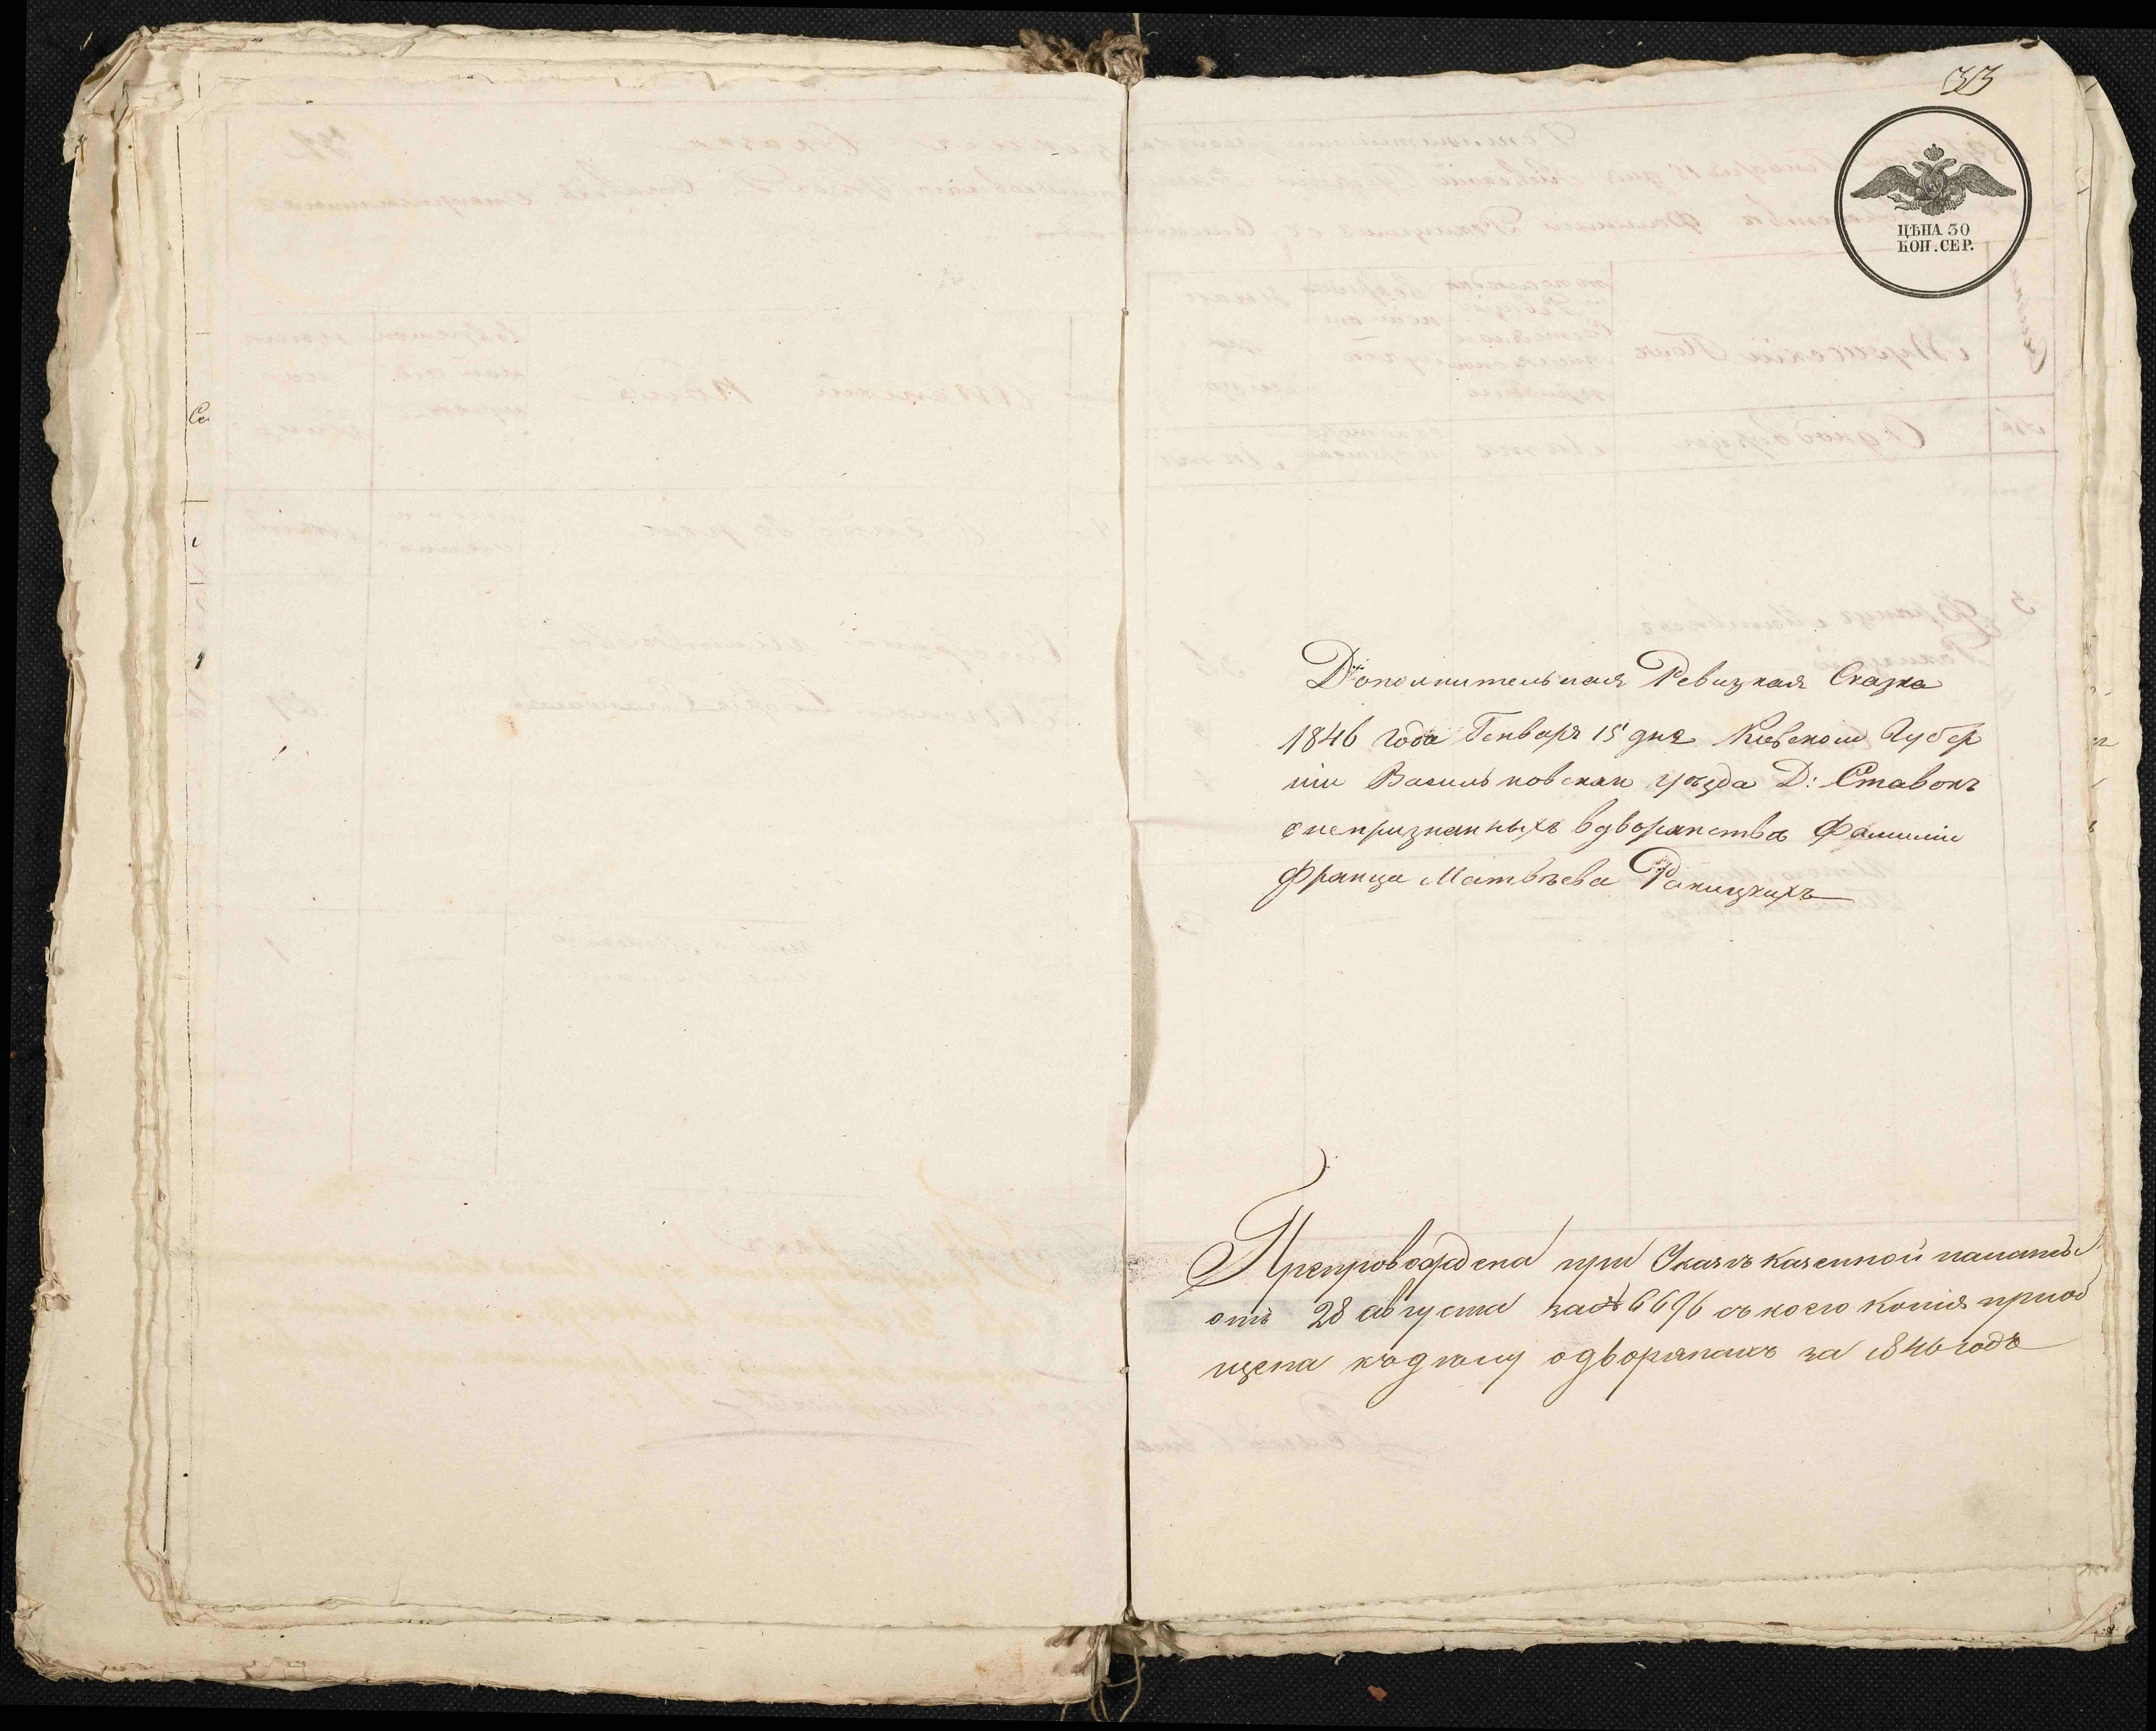 33
ЦѢНА 30
КОП. СЕР.
Дополнительная Ревизкая Сказка
1846 года Генваря 15 дня Киевской Губер
ніи Васильковскаго уѣзда Д: Ставокъ
о непризнанныхъ в дворянствѣ Фамиліи
Франца Матвѣева Ракицкихъ
Препровождена при Указѣ казенной палаты
отъ 28 августа за № 6696 съ коего копія приоб
щена къ дѣлу о дворянахъ за 1846 годъ